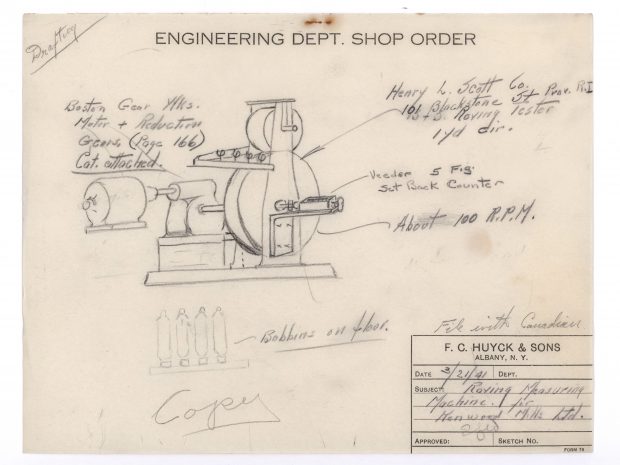 Drafting
ENGINEERING DEPT. SHOP ORDER
Boston Gear Wks.
Motor + Reduction
Gears (Page 166)
Cat. attached.
Henry L. Scott Co.
101 Blackstone St Prov. R.I
B + S. Roving Tester
1 yd cir.
Veeder 5 Fig
Set Back Counter
About 100 R.P.M.
Bobbins on floor.
Copy
File with Canadian
F. C. HUYCK & SONS
ALBANY, N. Y.
DATE 3/21/41 DEPT.
SUBJECT: Roving Measuring
Machine. for
Kenwood Mills Ltd.
APPROVED: SKETCH NO.
FORM 76